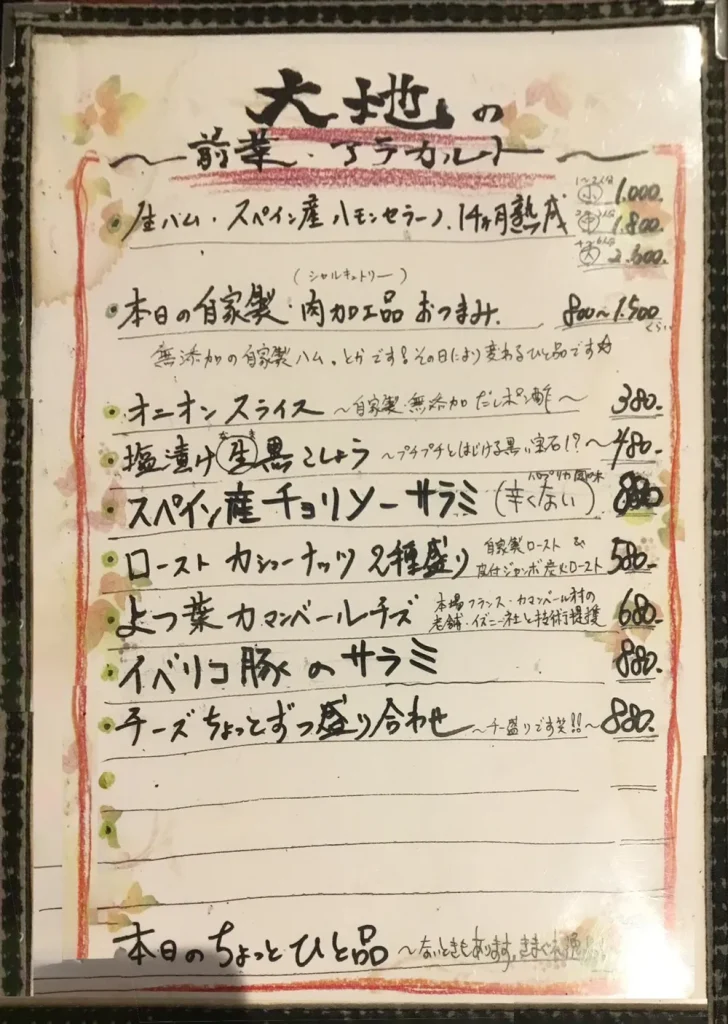 大地の
〜前菜・アラカルト〜
生ハム・スペイン産ハモンセラーノ.14ヶ月熟成 小 1.000.
中 1.800.
大 2.600.
(シャルキュトリー)
本日の自家製・肉加工品おつまみ. 800〜1.500くらい
無添加の自家製ハム、とかです!その日により変わるひと品です☆
オニオンスライス 〜自家製無添加だしポン酢〜 380.
塩漬け生黒こしょう 〜プチプチとはじける黒い宝石!?〜 480.
スペイン産チョリソーサラミ (辛くない) パプリカ風味 880
ローストカシューナッツ2種盛り 自家製ロースト&
皮付ジャンボ炭火ロースト 580.
よつ葉カマンベールチーズ 本場フランス・カマンベール村の
老舗・イズニー社と技術提携 680.
イベリコ豚のサラミ 880.
チーズちょっとずつ盛り合わせ 〜チー盛りです笑!!〜 880.
本日のちょっとひと品 〜ないときもあります。きまぐれ